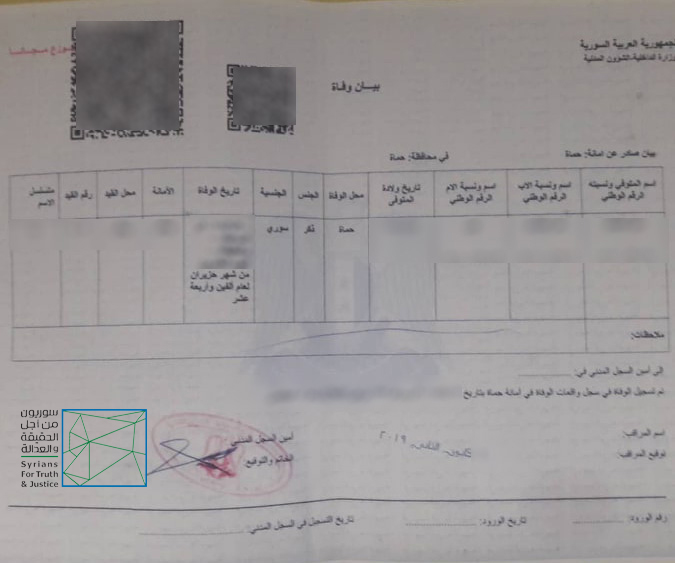 الجمهورية العربية السورية
وزارة الداخلية-الشؤون المدنية
يوزع مجاناً
بيـــان وفـاة
بيان صادر عن امانة: حماة
في محافظة: حماة
اسم المتوفي ونسبته الرقم الوطني
اسم ونسبة الاب الرقم الوطني
اسم ونسبة الام الرقم الوطني
تاريخ ولادة المتوفى
محل الوفاة
الجنس
الجنسية
تاريخ الوفاة
الأمانة
محل القيد
رقم القيد
مسلسل الاسم
حماة
ذكر
سوري
من شهر حزيران
لعام ألفين وأربعة
عشر
ملاحظات:
إلى أمين السجل المدني في:
تم تسجيل الوفاة في سجل واقعات الوفاة في أمانة حماة بتاريخ
اسم المراقب:
توقيع المراقب:
كانون الثاني ٢٠١٩
أمين السجل المدني
الخاتم والتوقيع:
رقم الورود:
تاريخ الورود:
تاريخ التسجيل في السجل المدني:
سوريون
من أجل
الحقيقة
والعدالة
Syrians
For Truth
& Justice